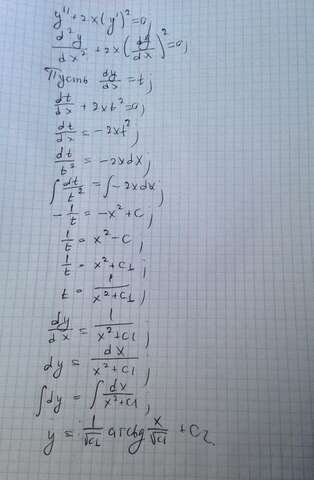 y'' + 2x(y')² = 0;
d²y/dx² + 2x(dy/dx)² = 0;
Пусть dy/dx = t;
dt/dx + 2xt² = 0;
dt/dx = -2xt²;
dt/t² = -2xdx;
∫dt/t² = ∫-2xdx;
-1/t = -x² + C;
1/t = x² - C;
1/t = x² + C1;
t = 1/(x² + C1);
dy/dx = 1/(x² + C1);
dy = dx/(x² + C1);
∫dy = ∫dx/(x² + C1);
y = 1/√C1 arctg x/√C1 + C2